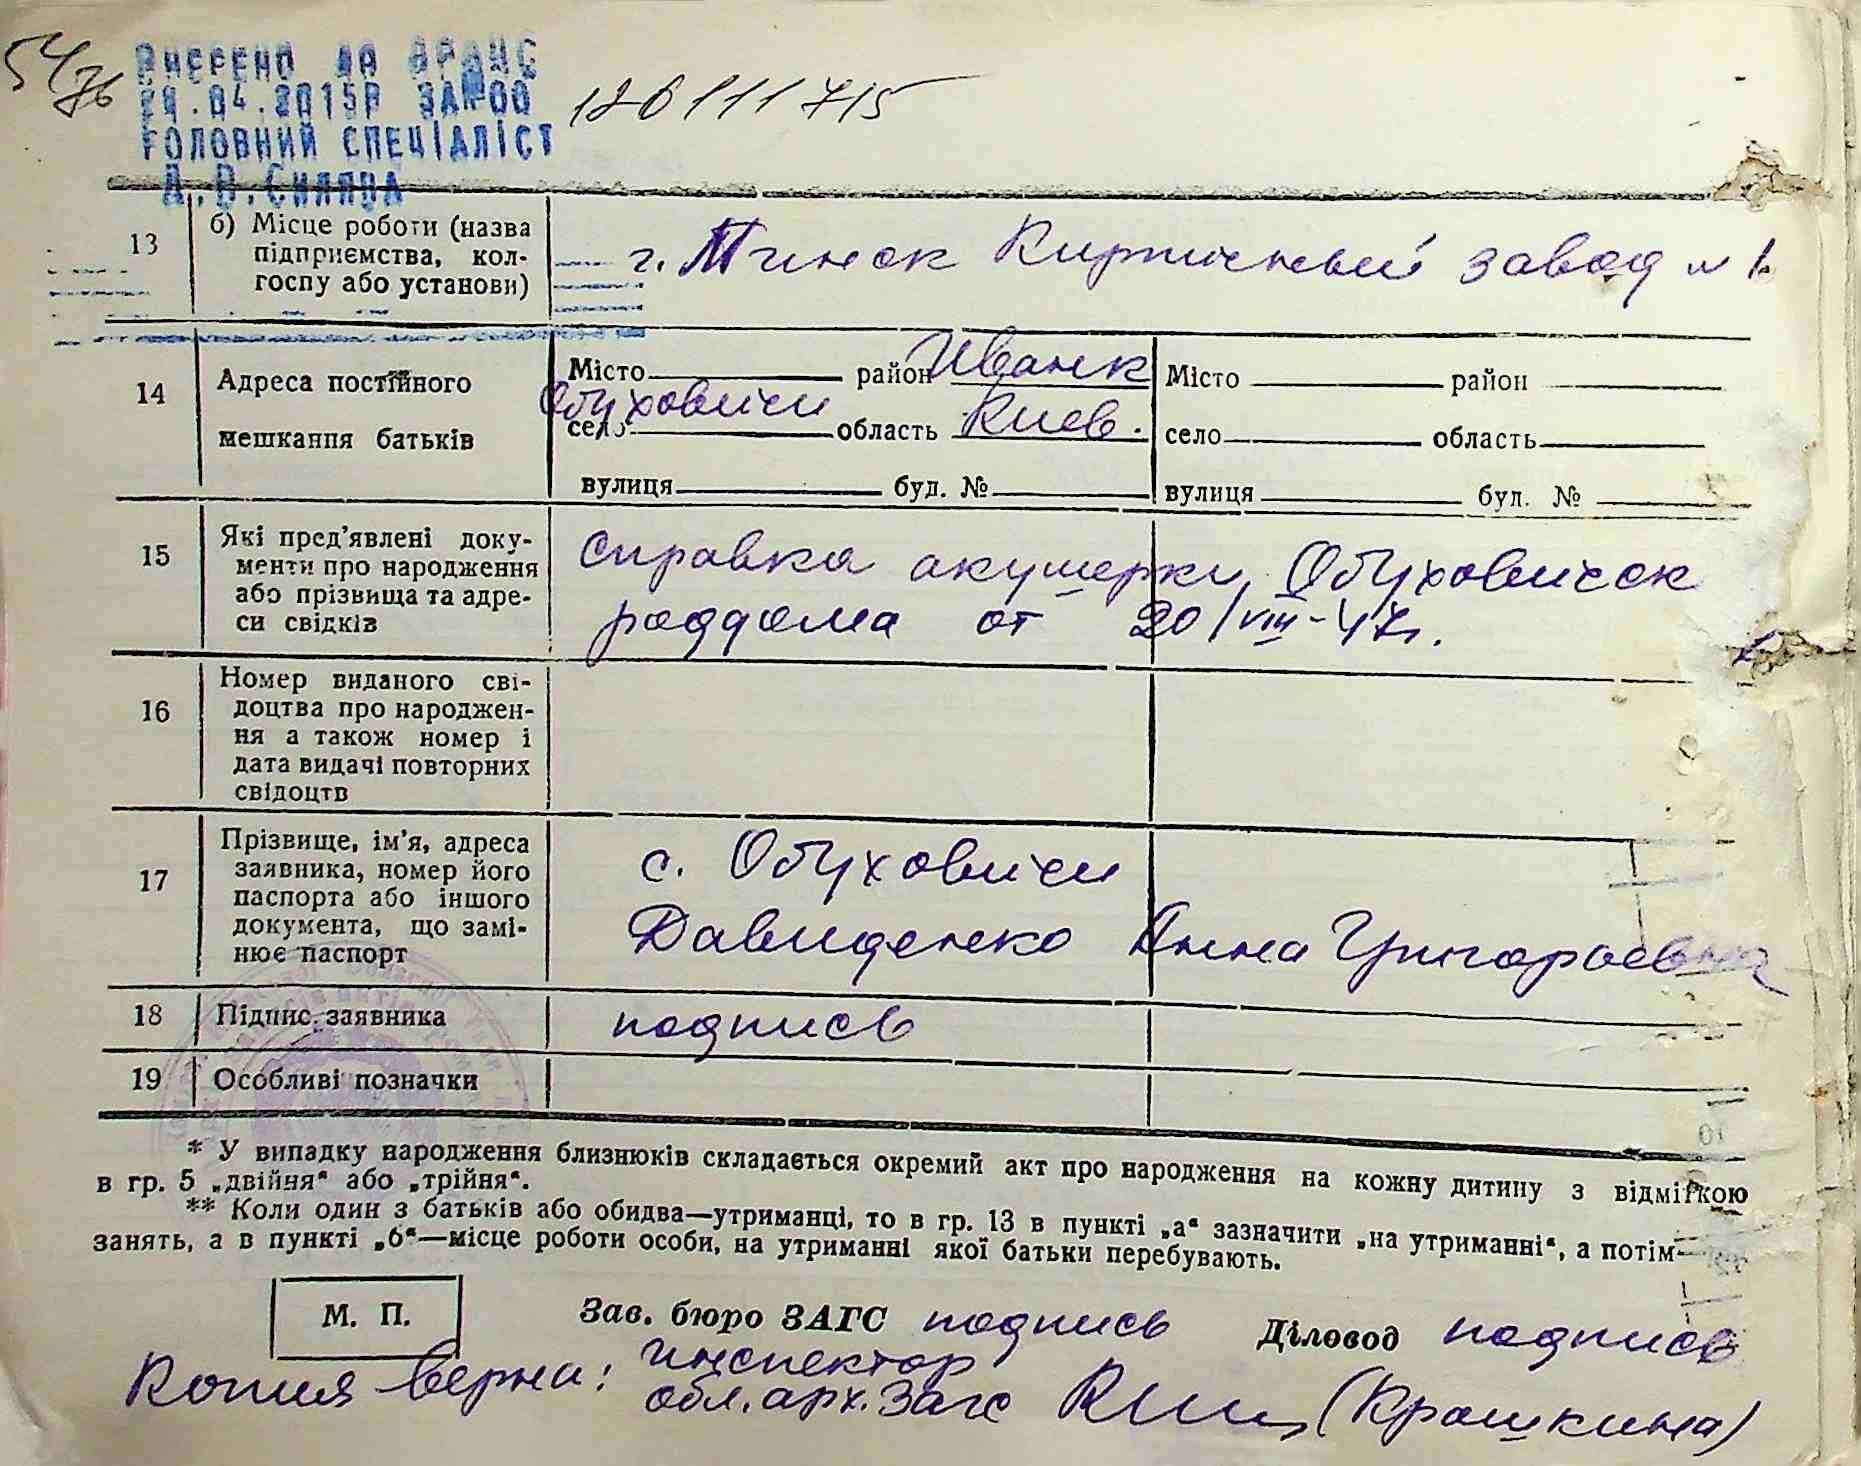 54/76
ВНЕСЕНО ДО ДРАЦС
24.04.2015Р
ГОЛОВНИЙ СПЕЦІАЛІСТ
120111715
13 б) Місце роботи (назва
підприємства, кол-
госпу або установи)
г. Минск Кирпичный завод № 1
14 Адреса постійного
мешкання батьків
Місто район Иванк
Обуховичи
село область Киев.
вулиця буд. №
Місто район
село область
вулиця буд. №
15 Які пред'явлені доку-
менти про народження
або прізвища та адре-
си свідків
Справка акушерки Обуховичск
роддома от 20/VIII-47г.
16 Номер виданого сві-
доцтва про народжен-
ня а також номер і
дата видачі повторних
свідоцтв
17 Прізвище, ім'я, адреса
заявника, номер його
паспорта або іншого
документа, що замі-
нює паспорт
с. Обуховичи
Давиденко Анна Григорьевна
18 Підпис заявника
подпись
19 Особливі позначки
* У випадку народження близнюків складається окремий акт про народження на кожну дитину з відміткою
в гр. 5 „двійня“ або „трійня“.
** Коли один з батьків або обидва—утриманці, то в гр. 13 в пункті „а“ зазначити „на утриманні“, а потім—
занять, а в пункті „б“—місце роботи особи, на утриманні якої батьки перебувають.
М. П.
Зав. бюро ЗАГС подпись Діловод подпись
Копия верна: инспектор
обл. арх. Загс (Крошкина)